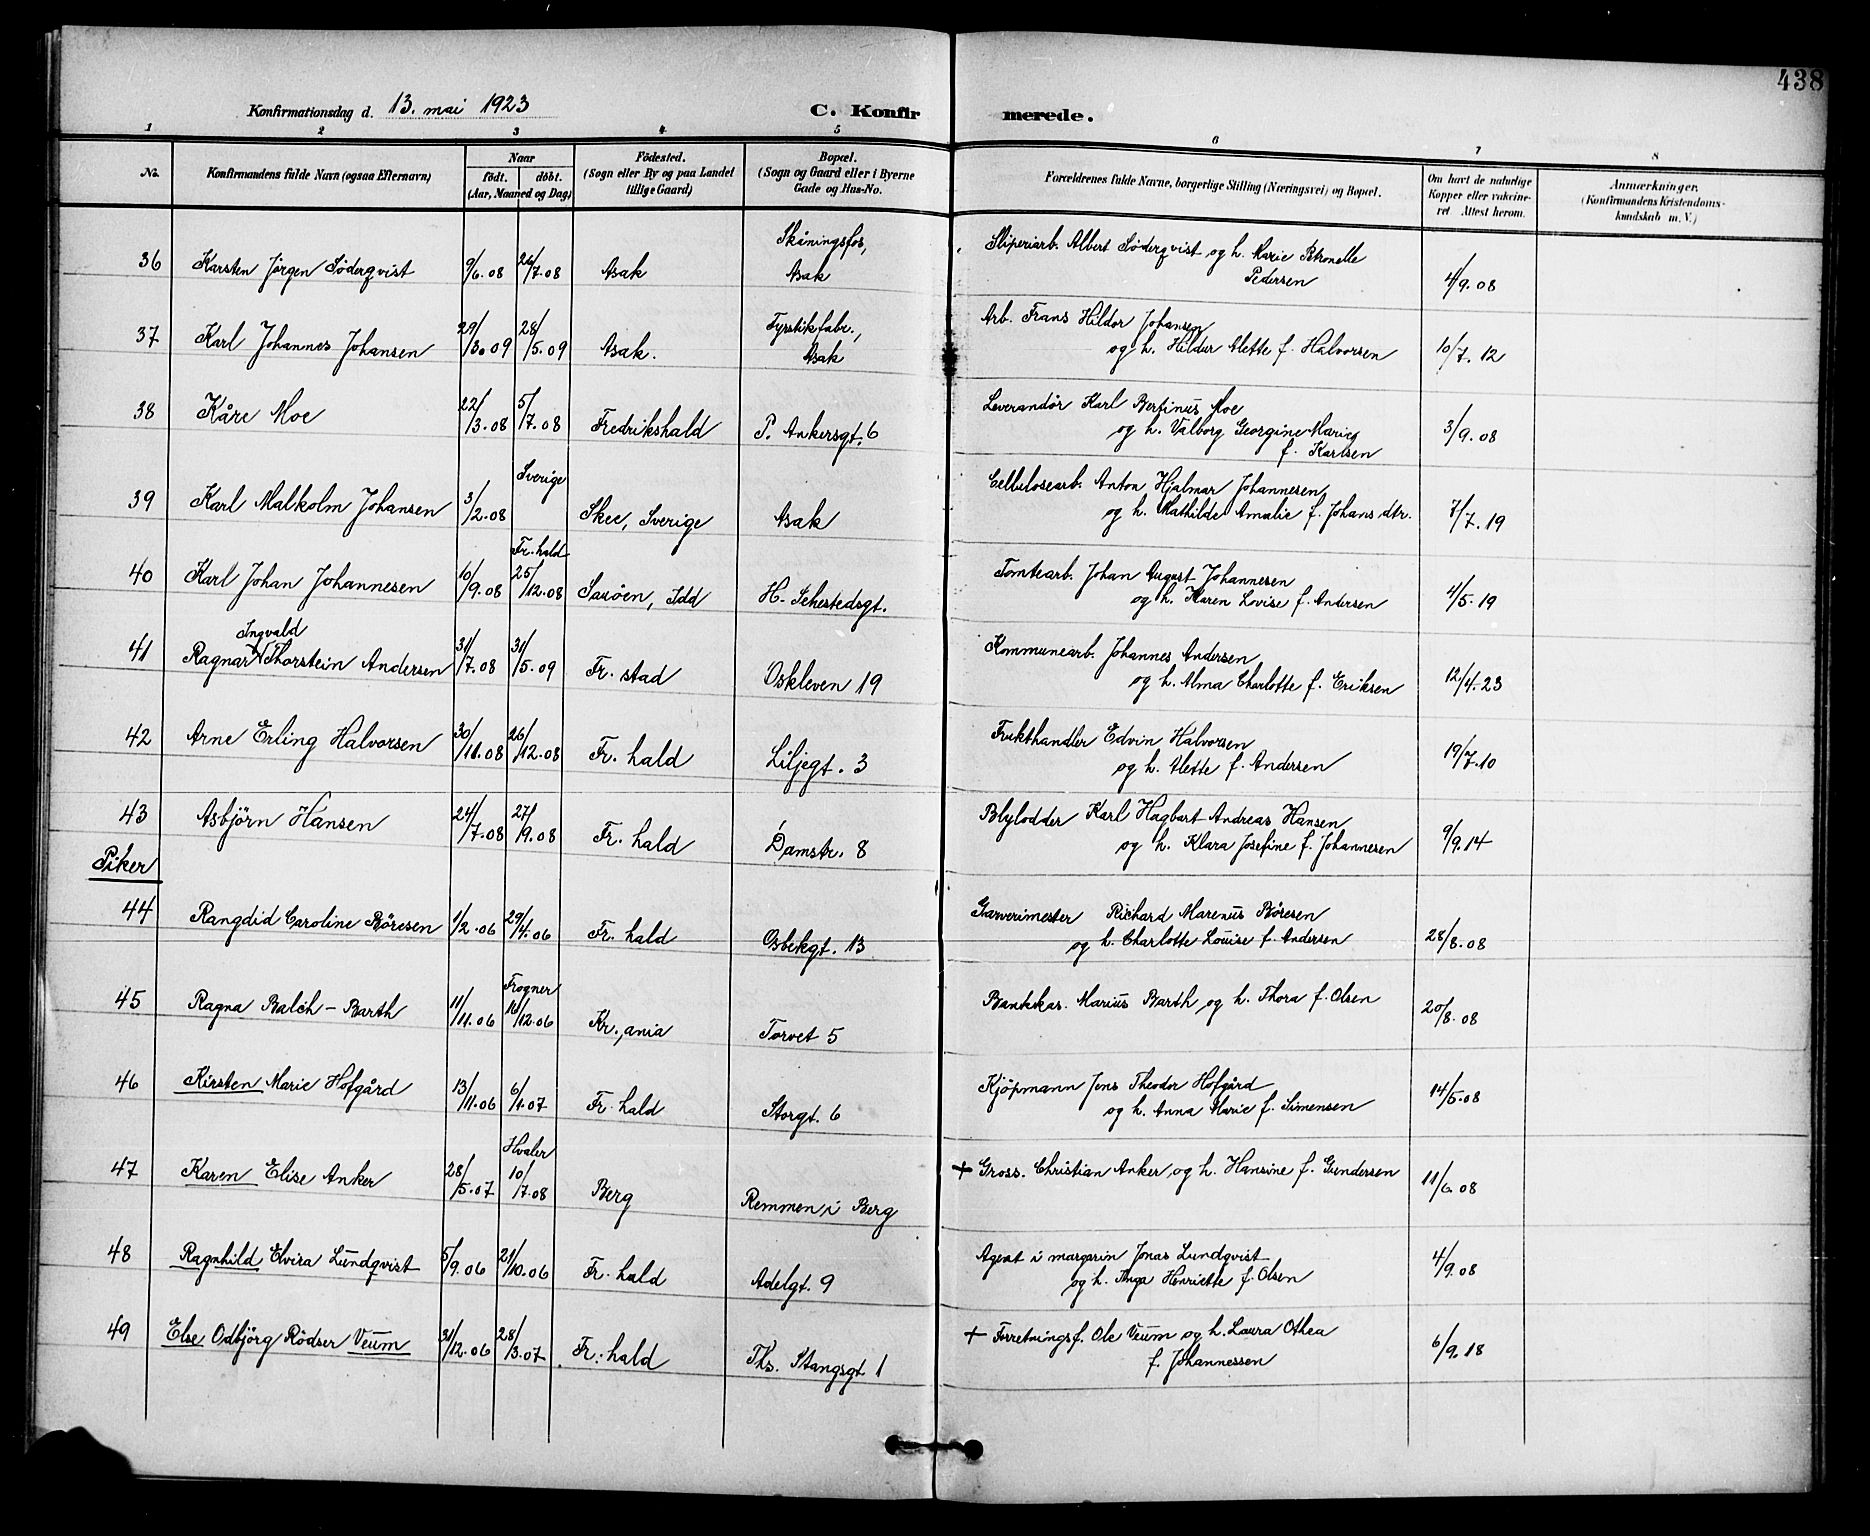 438
Konfirmationsdag d. 13. mai 1923
C. Konfirmerede.
1 2 3 4 5 6 7 8
No.
Konfirmandens fulde Navn (ogsaa Efternavn)
Naar
födt. döbt.
(Aar, Maaned og Dag)
Födested.
(Sogn eller By og paa Landet
tillige Gaard)
Bopæl.
(Sogn og Gaard eller i Byerne
Gade og Hus-No.
Forældrenes fulde Navne, borgerlige Stilling (Næringsvei) og Bopæl.
Om havt de naturlige
Kopper eller vakcine-
ret Attest herom.
Anmærkninger.
(Konfirmandens Kristendoms-
kundskab m. V.)
36 Karsten Jørgen Søderqvist 9/6.08 26/7.08 Asak Skåningsfos, Asak Sliperiarb. Albert Søderqvist og h. Marie Petronelle
Pedersen 4/9.08
37 Karl Johannes Johansen 29/3.09 28/5.09 Asak. Fyrstikfabr., Asak Arb. Frans Hildor Johansen
og h. Hildur Alette f. Halvorsen 10/7.12
38 Kåre Moe 22/3.08 5/7.08 Fredrikshald P. Ankersgt. 6 Leverandør Karl Bertinus Moe
og h. Valborg Georgine Marie
f. Karlsen 3/9.08
39 Karl Malkolm Johansen 3/2.08 Sverige Skee, Sverige Asak Cellulosearb. Anton Hjalmar Johannesen
og h. Mathilde Amalie f. Johans dtr. 7/7.19
40 Karl Johan Johannesen 10/9.08 Fr.hald 25/12.08 Sauøen, Idd H. Sehestedsgt. Tomtearb. Johan August Johannesen
og h. Maren Lovise f. Andersen 4/5.19
Ingvald
41 Ragnar Thorstein Andersen 31/7.08 31/5.09 Fr. stad Oskleven 19 Kommunearb. Johannes Andersen
og h. Alma Charlotte f. Eriksen 12/4.23
42 Arne Erling Halvorsen 30/11.08 26/12.08 Fr. hald Liljegt. 3 Frukthandler Edvin Halvorsen
og h. Alette f. Andersen 19/7.10
43 Asbjörn Hansen 24/7.08 27/9.08 Fr. hald Damstr. 8 Blylodder Karl Hagbart Andreas Hansen
og h. Klara Josefine f. Johannesen 9/9.14
Piker
44 Rangdid Caroline Böresen 1/2.06 29/4.06 Fr. hald Osbekgt. 13 Garverimester Richard Marenus Böresen
og h. Charlotte Louise f. Andersen 28/8.08
45 Ragna Balch-Barth 11/11.06 Frogner 16/12.06 Kr.,ania Torvet 5 Bankkas. Marius Barth og h. Thora f. Olsen 20/8.08
46 Kirsten Marie Hofgård 13/11.06 6/1.07 Fr. hald Storgt. 6 Kjöpmann Jens Theodor Hofgård
og h. Anna Marie f. Simensen 14/5.08
47 Karen Elise Anker 28/5.07 Hvaler 10/7.08 Berg Remmen i Berg + Gross. Christian Anker og h. Hansine f. Gundersen 11/6.08
48 Ragnhild Elvira Lundqvist 5/9.06 21/10.06 Fr. hald Adelgt. 9 Agent i margarin Jonas Lundqvist
og h. Inga Henriette f. Olsen 4/9.08
49 Else Odbjörg Rödser Veum 31/12.06 28/3.07 Fr. hald Ths. Stangsgt 1 + Forretningsf. Ole Veum og h. Laura Othea
f. Johannessen 6/9.18